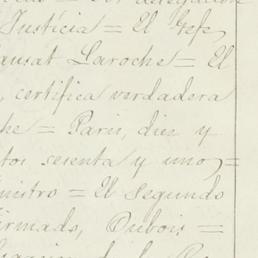 Por delegacion
Justicia = El Gefe
ausat Laroche = El
, certifica verdadera
he = Paris, diez y
tos sesenta y uno =
nistro = El Segundo
irmado, Dubois =